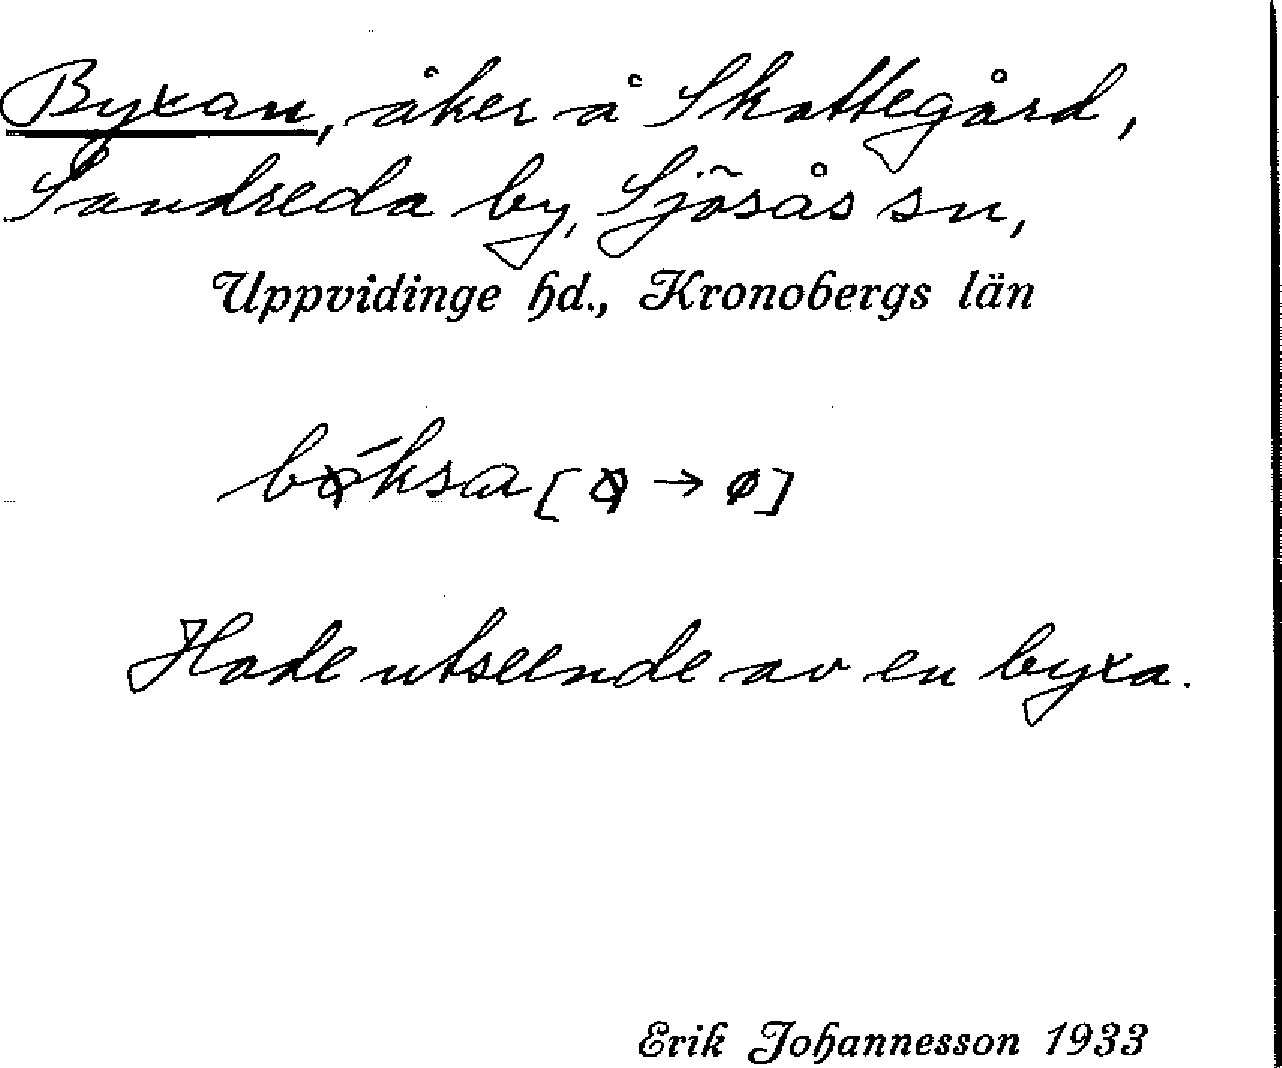 Byxan, åker å Skattegård,
Sandreda by, Sjösås sn,
Uppvidinge hd., Kronobergs län
bǿksa [ → ø]
Hade utseende av en byxa.
Erik Johannesson 1933